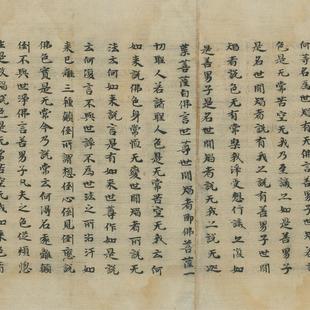 何等名為世間
色是无常苦空无我乃至識亦如是善男子
是名世間智者說有我亦說有善男子世間
智者說色无有常樂我淨受想行識亦復如
是善男子是名世間智者說无我亦說无迦
葉菩薩白佛言世尊世間智者即佛菩薩一
切聖人若諸聖人色是无常苦空无我云何
如來說佛色身常恒无變世間智者所說无
法云何如來說言是有如來世尊作如是說
云何復言不與世諍不為世法之所沾污如
來已離三種顛倒所謂想倒心倒見倒應說
佛色實是无常今乃說常云何得名遠離顛
倒不與世諍佛言善男子凡夫之色從煩惱
生是故智說色是无常苦空无我如來色者